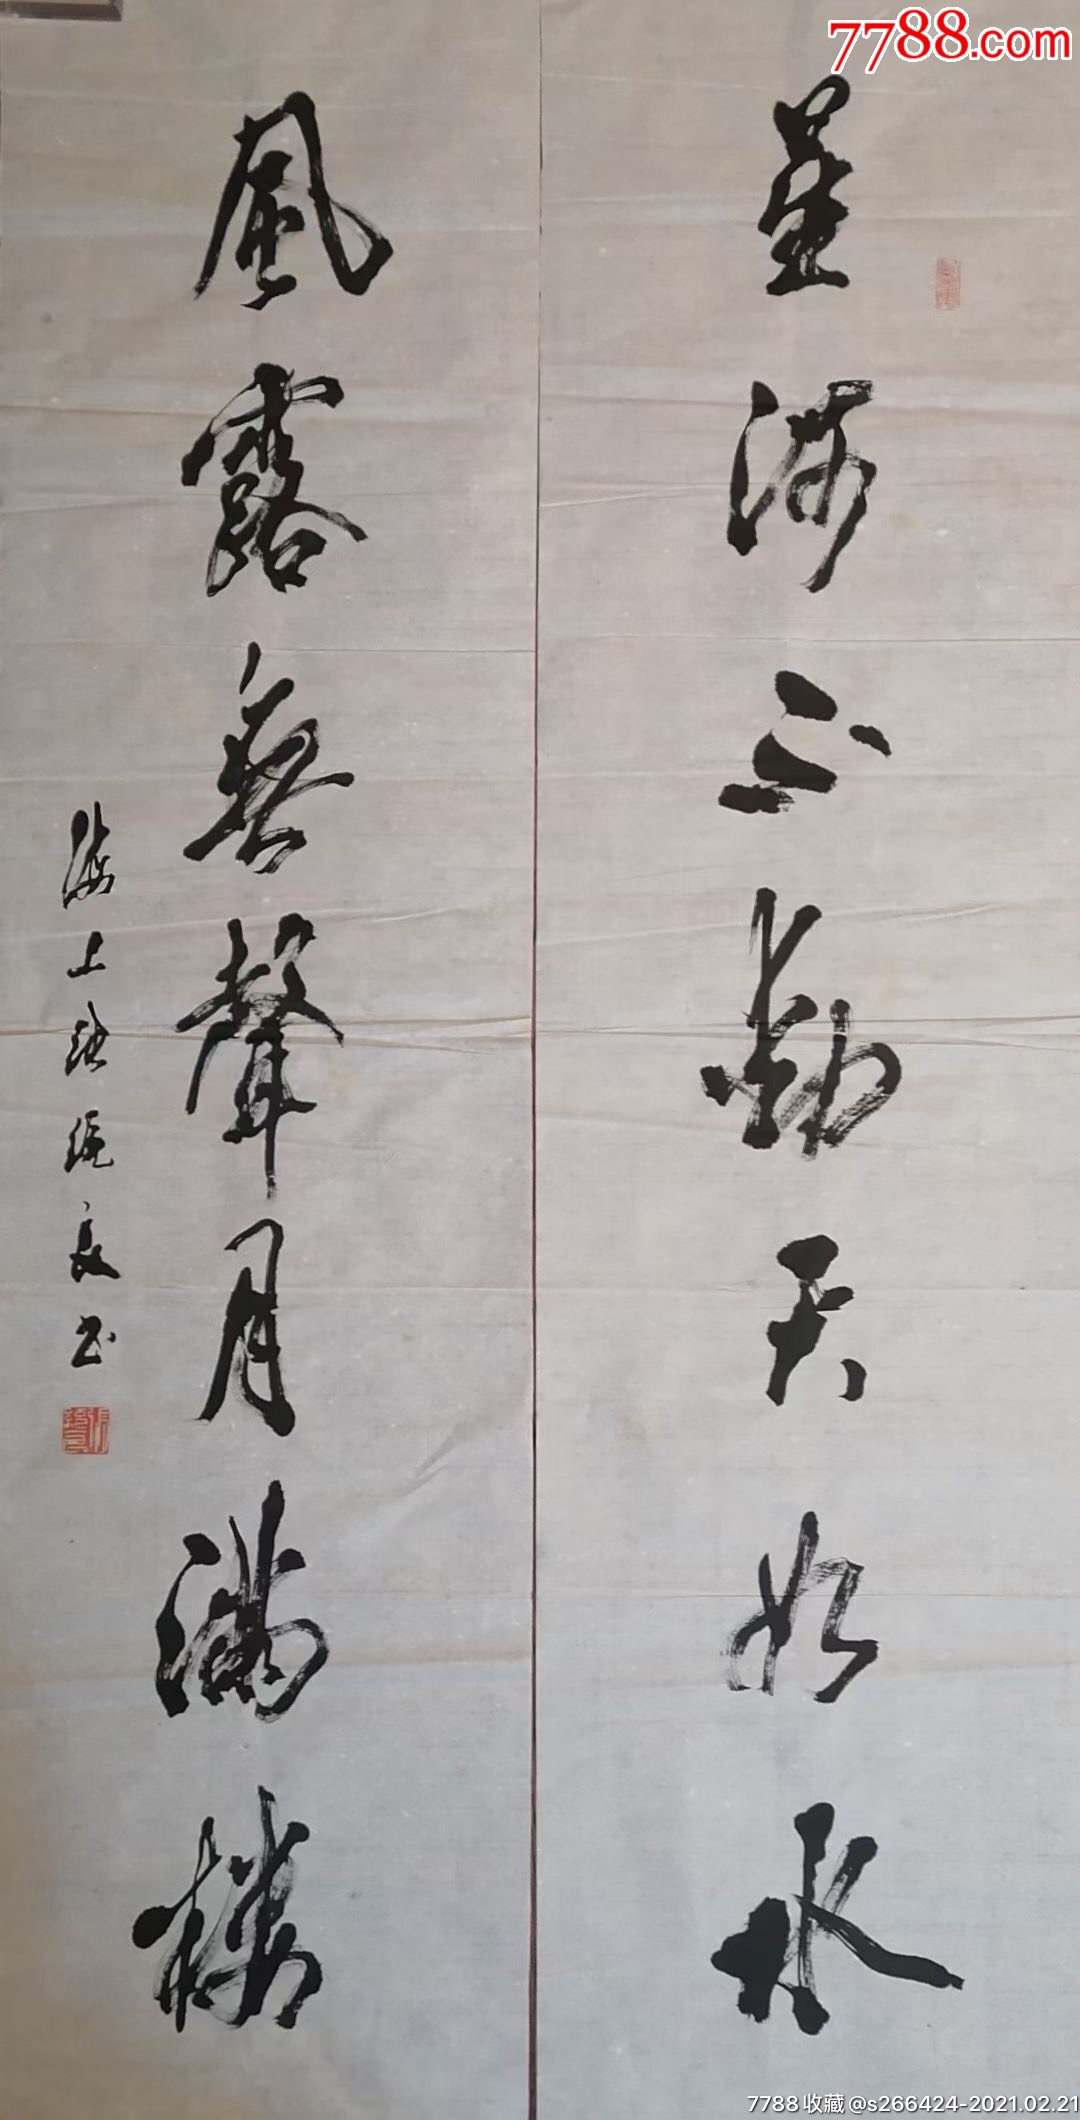 星河不動天如水
風露無聲月滿樓
海上張統良書
7788.com
7788收藏@s266424-2021.02.21